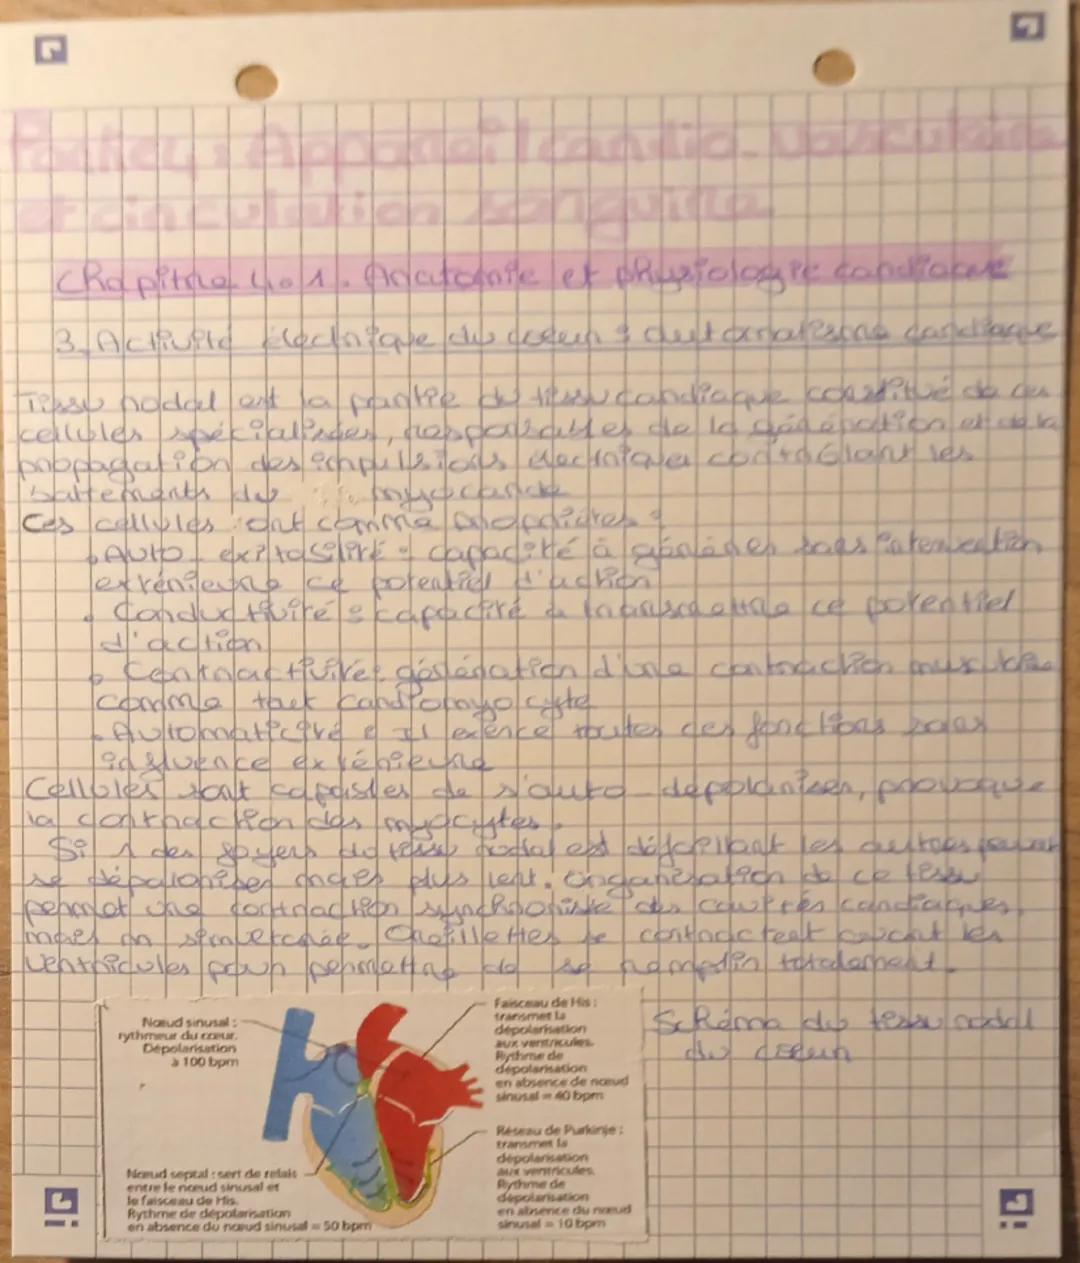 Partie 4 : Appareil cardio-vasculaire
et circulation sanguine
Chapitre 4.1. Anatomie et physiologie cardiaque
3. Activité électrique du coeur : automatisme cardiaque
Tissu nodal est la partie du tissu cardiaque constitué de ces
cellules spécialisées, responsables de la génération et de la
propagation des impulsions électriques contrôlant les
battements du myocarde
Ces cellules ont comme propriétés :
Auto-excitabilité : capacité à générer sans intervention
extérieure ce potentiel d'action
Conductivité : capacité à transmettre ce potentiel
d'action
Contractivité : génération d'une contraction musculaire
comme tout cardiomyocyte
Automaticité : Il exerce toutes ces fonctions sans
influence extérieure
Cellules sont capables de s'auto-dépolariser, provoque
la contraction des myocytes.
Si 1 des foyers du tissu nodal est défaillant les autres peuvent
se dépolariser mais plus lent. Organisation de ce tissu
permet une contraction synchronisée des cavités cardiaques,
mais en Oreillettes se contractent avant les
ventricules pour permettre de se remplir totalement.
Schéma du tissu nodal
du coeur
Nœud sinusal :
rythmeur du cœur.
Dépolarisation
à 100 bpm
Faisceau de His :
transmet la
dépolarisation
aux ventricules.
Rythme de
dépolarisation
en absence de nœud
sinusal = 40 bpm
Nœud septal : sert de relais
entre le nœud sinusal et
le faisceau de His.
Rythme de dépolarisation
en absence du nœud sinusal = 50 bpm
Réseau de Purkinje :
transmet la
dépolarisation
aux ventricules.
Rythme de
dépolarisation
en absence du nœud
sinusal = 10 bpm